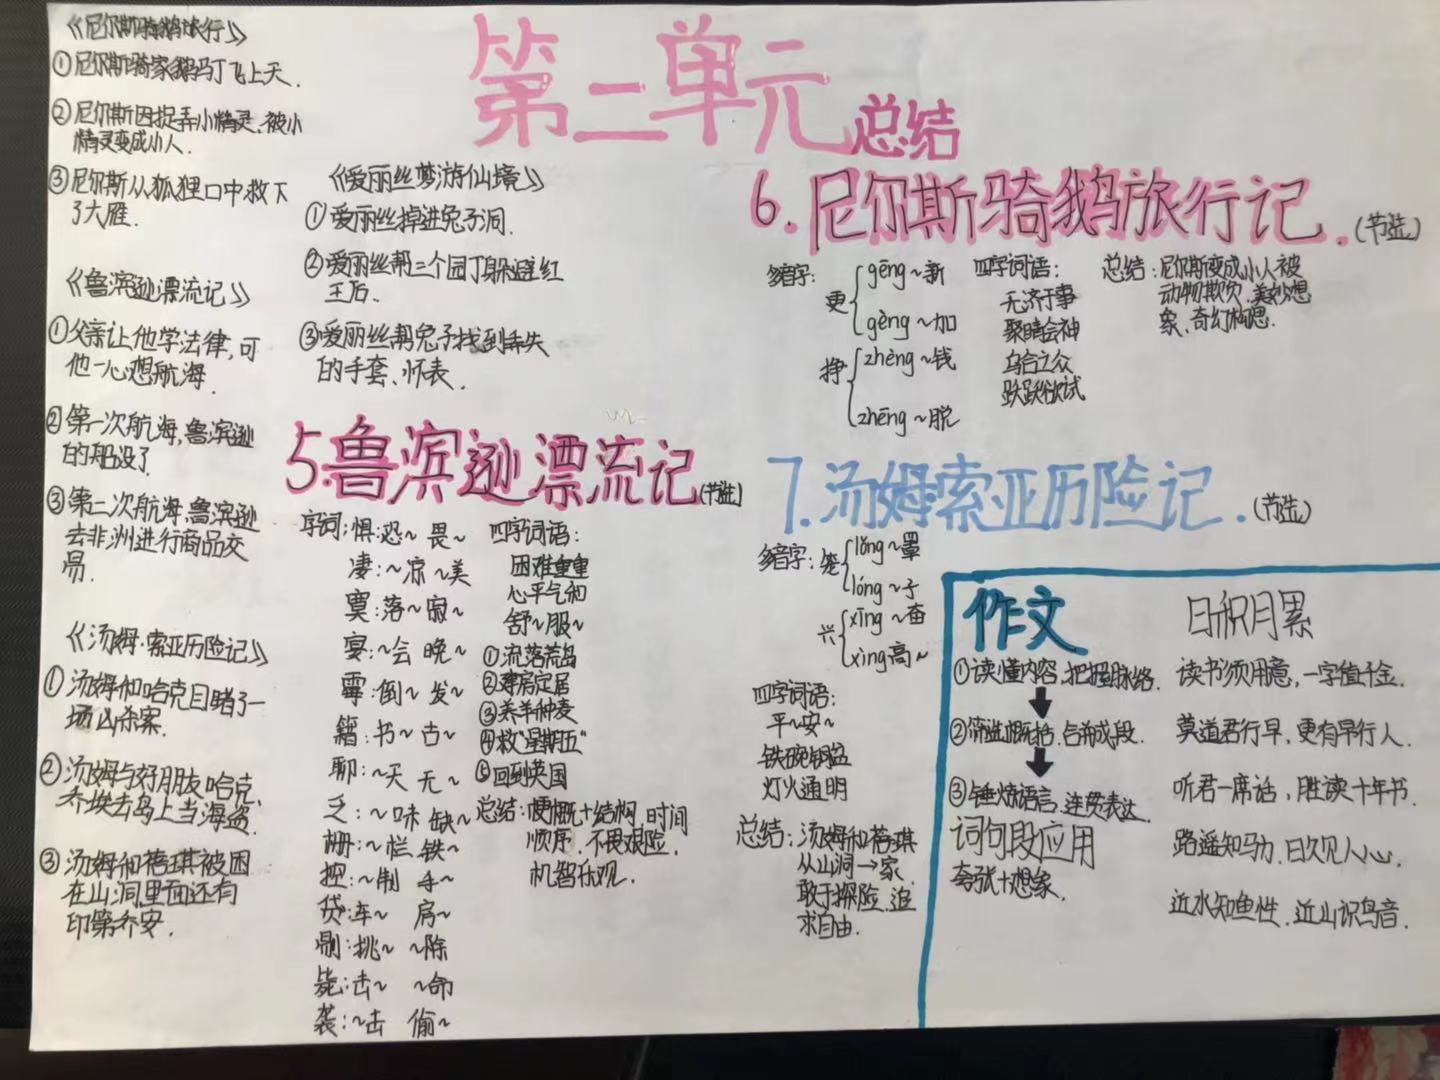 第二单元
总结
《尼尔斯骑鹅旅行》
①尼尔斯骑家鹅马丁飞上天.
②尼尔斯因捉弄小精灵、被小
精灵变成小人.
③尼尔斯从狐狸口中救下
了大雁.
《鲁滨逊漂流记》
①父亲让他学法律,可
他一心想航海.
②第一次航海,鲁滨逊
的船没了.
③第二次航海,鲁滨逊
去非洲进行商品交
易.
《汤姆·索亚历险记》
①汤姆和哈克目睹了一
场凶杀案.
②汤姆与好朋友哈克、
乔埃去岛上当海盗.
③汤姆和蓓琪被困
在山洞里面还有
印第乔安.
《爱丽丝梦游仙境》
①爱丽丝掉进兔子洞.
②爱丽丝帮三个园丁躲避红
王后.
③爱丽丝帮兔子找到丢失
的手套、怀表.
5.鲁滨逊漂流记(节选)
字词:惧:恐~ 畏~
凄:~凉 ~美
寞:落~ 寂~
宴:~会 晚~
霉:倒~ 发~
籍:书~ 古~
聊:~天 无~
乏:~味 缺~
栅:~栏 铁~
控:~制 手~
贷:车~ 房~
剔:挑~ ~除
毙:击~ ~命
袭:~击 偷~
四字词语:
困难重重
心平气和
舒~服~
①流落荒岛
②建房定居
③养羊种麦
④救“星期五”
⑤回到英国
总结:梗概+结构,时间
顺序,不畏艰险,
机智乐观.
6.尼尔斯骑鹅旅行记.(节选)
多音字:
更
gēng~新
gèng~加
挣
zhèng~钱
zhēng~脱
四字词语:
无济于事
聚睛会神
乌合之众
跃跃欲试
总结:尼尔斯变成小人被
动物欺负,美妙想
象、奇幻构思.
7.汤姆索亚历险记.(节选)
多音字:
笼
lǒng~罩
lóng~子
兴
xīng~奋
xìng高~
四字词语:
平~安~
铁碗钢盆
灯火通明
总结:汤姆和蓓琪
从山洞→家.
敢于探险,追
求自由.
作文
①读懂内容,把握脉络.
②筛选概括,合并成段.
③锤炼语言,连贯表达.
词句段应用
夸张+想象.
日积月累
读书须用意,一字值千金.
莫道君行早,更有早行人.
听君一席话,胜读十年书.
路遥知马力,日久见人心.
近水知鱼性,近山识鸟音.